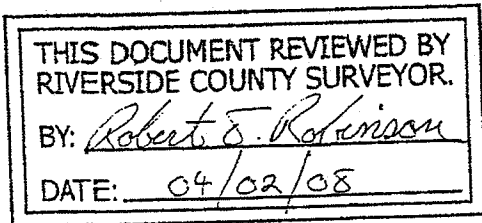 THIS DOCUMENT REVIEWED BY
RIVERSIDE COUNTY SURVEYOR.
BY: Robert J. Robinson
DATE: 04/02/08